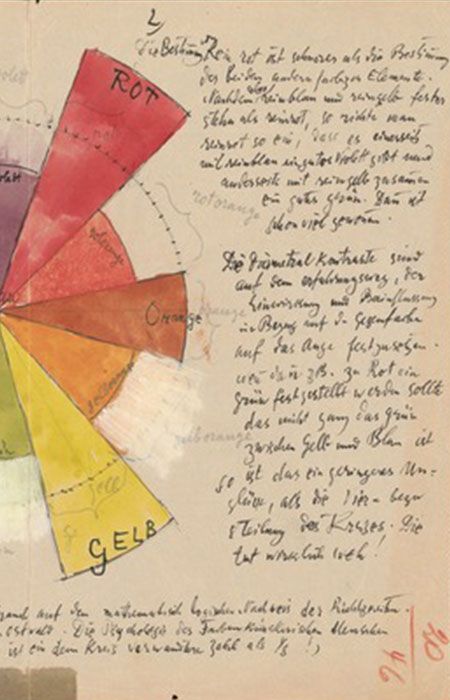 2)
Die Bestimmg Rein rot ist schwerer als die Bestimung
der beiden andern farbigen Elemente.
Nachdem aber reinblau und reingelb fester
stehn als reinrot, so richte man
reinrot so ein, dass es einerseits
mit reinblau ein gutes Violett gibt und
anderseits mit reingelb zusammen
ein gutes grün. Dann ist
schon viel gewonnen.
ROT
rot
rotorange
violett
rotorange
Orange
orange
gelborange
gelborange
gelb
GELB
Die Diametral Kontraste sind
auf dem erfahrungsweg, der
Einwirkung und Beeinflussung
in Bezug auf d. Gegenfarbe
auf das Auge festzusetzen.
wenn da z.B. zu Rot ein
grün festgestellt werden sollte
das nicht ganz das grün
zwischen Gelb und Blau ist
so ist das ein geringeres Un=
glück, als die
teilung des Kreises! Die
tut wirklich weh!
auf dem mathematisch logischen Nachweis der Richtigkeiten
Ostwald. Die Psychologie des Farben künstlerischen Menschen
ist ein dem Kreis verwandte Zahl als 1/8 !)
20
46